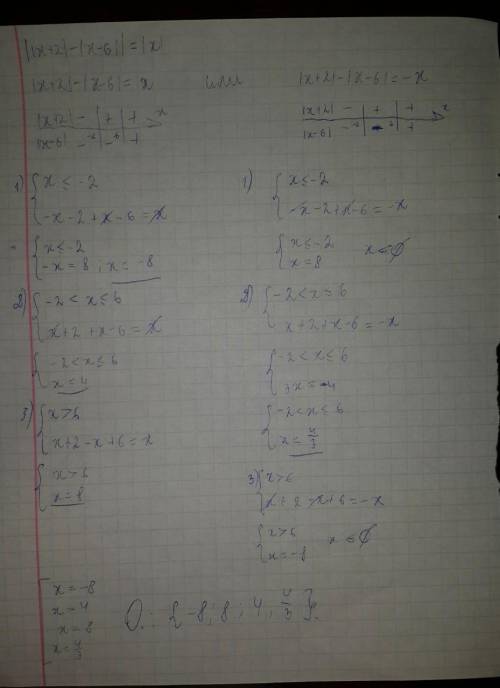 ||x+2|-|x-6||=|x|
|x+2|-|x-6|=x или |x+2|-|x-6|=-x
|x+2| - | + | + x
|x-6| - | - | +
|x+2| - | + | + x
|x-6| - | - | +
1) { x ≤ -2
-x-2+x-6=x
{ x ≤ -2
-x=8; x=-8
2) { -2<x≤6
x+2+x-6=x
{ -2<x≤6
x=4
3) { x>6
x+2-x+6=x
{ x>6
x=8
1) { x≤-2
-x-2+x-6=-x
{ x≤-2
x=8 x∈∅
2) { -2<x≤6
x+2+x-6=-x
{ -2<x≤6
3x=4
{ -2<x≤6
x=4/3
3) { x>6
x+2-x+6=-x
{ x>6
x=-8 x∈∅
[ x=-8
x=4
x=8
x=4/3
О.: {-8; 8; 4; 4/3}.